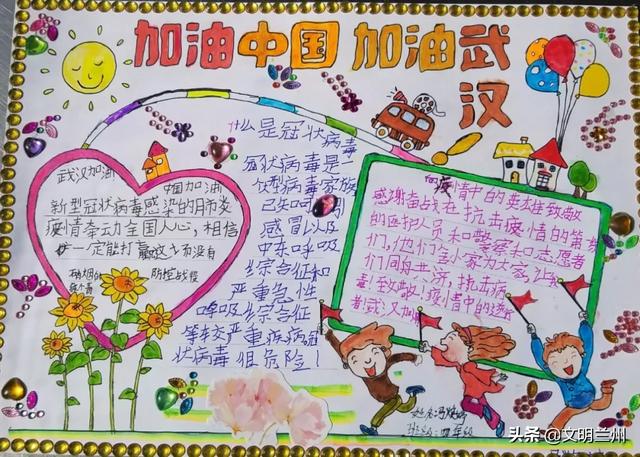 加油中国 加油武汉
什么是冠状病毒
冠状病毒是
大型病毒家族
已知可引
感冒以及
中东呼吸
综合征和
严重急性
呼吸综合征
等较严重疾病冠
状病毒很危险！
武汉加油
中国加油
新型冠状病毒感染的肺炎
疫情牵动全国人心，相信
一定能打赢这场没有
硝烟的
防控战役
向疫情中的英雄致敬
感谢奋战在抗击疫情的第
的医护人员和警察和志愿者
们，他们舍小家为大家，让我
们同舟共济，抗击病
毒！致敬！疫情中的逆行
者！武汉加油
姓名：冯
班级：四年级
头条 @文明兰州